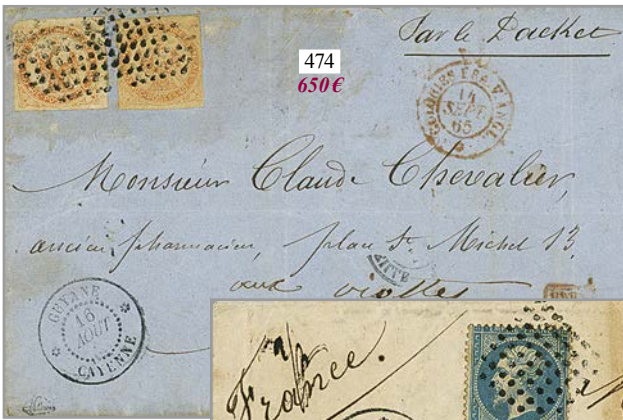 Par le Packet
474
650€
COLONIES FRA. V. ANGL.
14
SEPT
65
Monsieur Claude Chevalier,
ancien pharmacien, place St. Michel 13
aux
GUYANE
16
AOUT
CAYENNE
France.